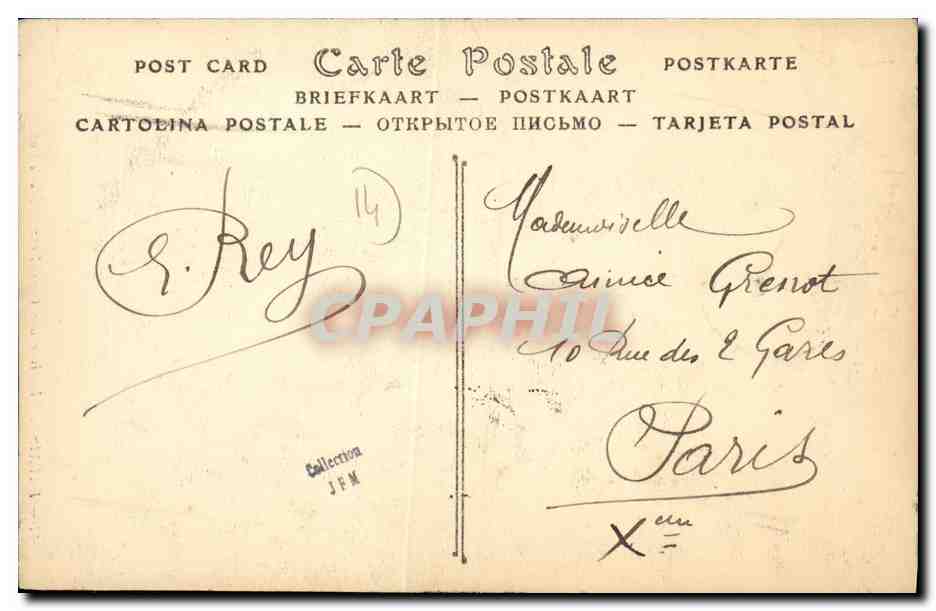 POST CARD Carte Postale POSTKARTE
BRIEFKAART — POSTKAART
CARTOLINA POSTALE — ОТКРЫТОЕ ПИСЬМО — TARJETA POSTAL
14
Rey
Mademoiselle
10 Rue des 2 Gares
Paris
Xem
Collection
JFM
CPAPHIL